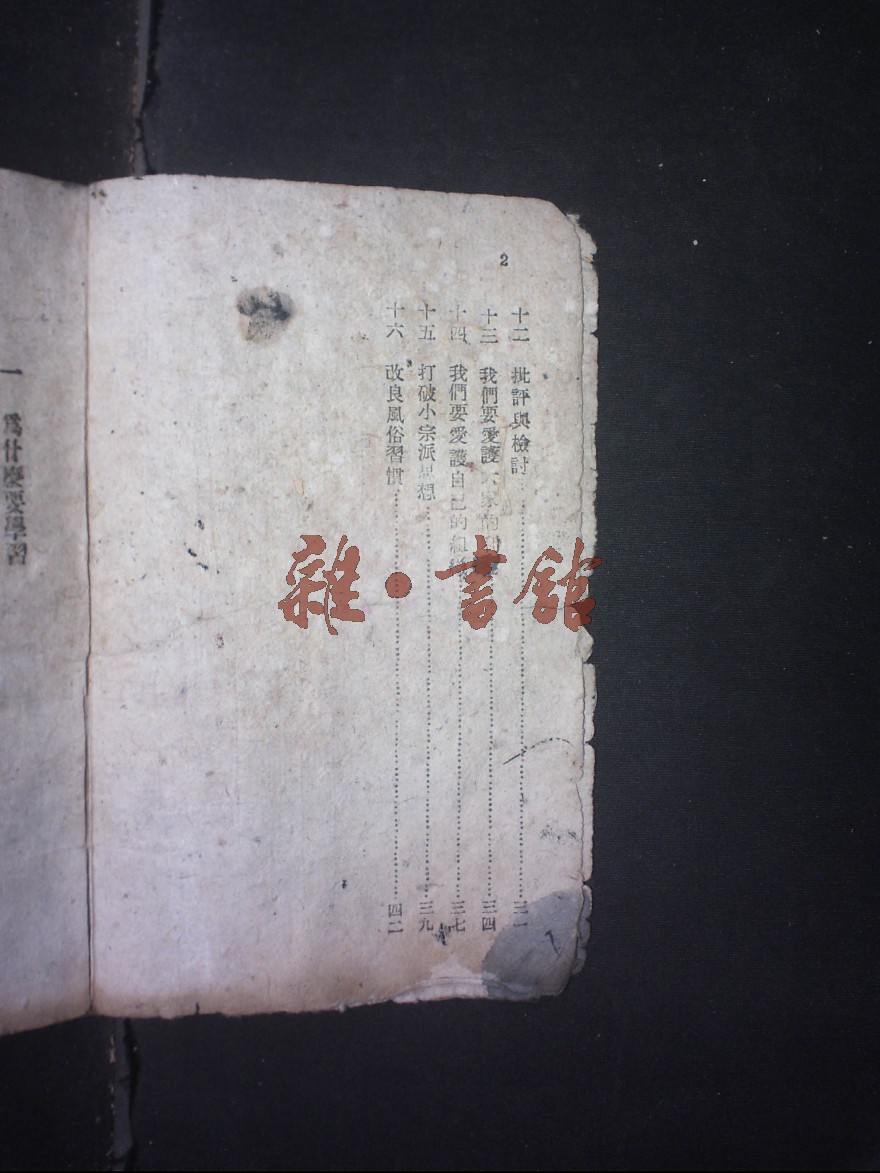 2
十二 批評與檢討……三一
十三 我們要愛護大家的……三四
十四 我們要愛護自己的組織……三七
十五 打破小宗派思想……三九
十六 改良風俗習慣……四二
一 爲什麼要學習
雜·書館